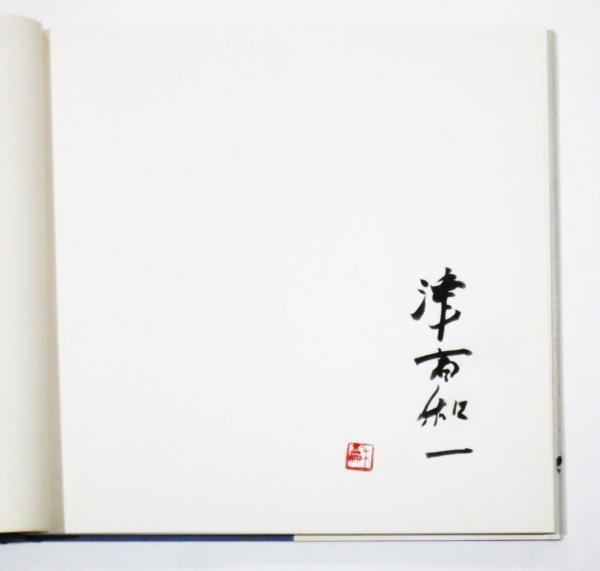 津高和一